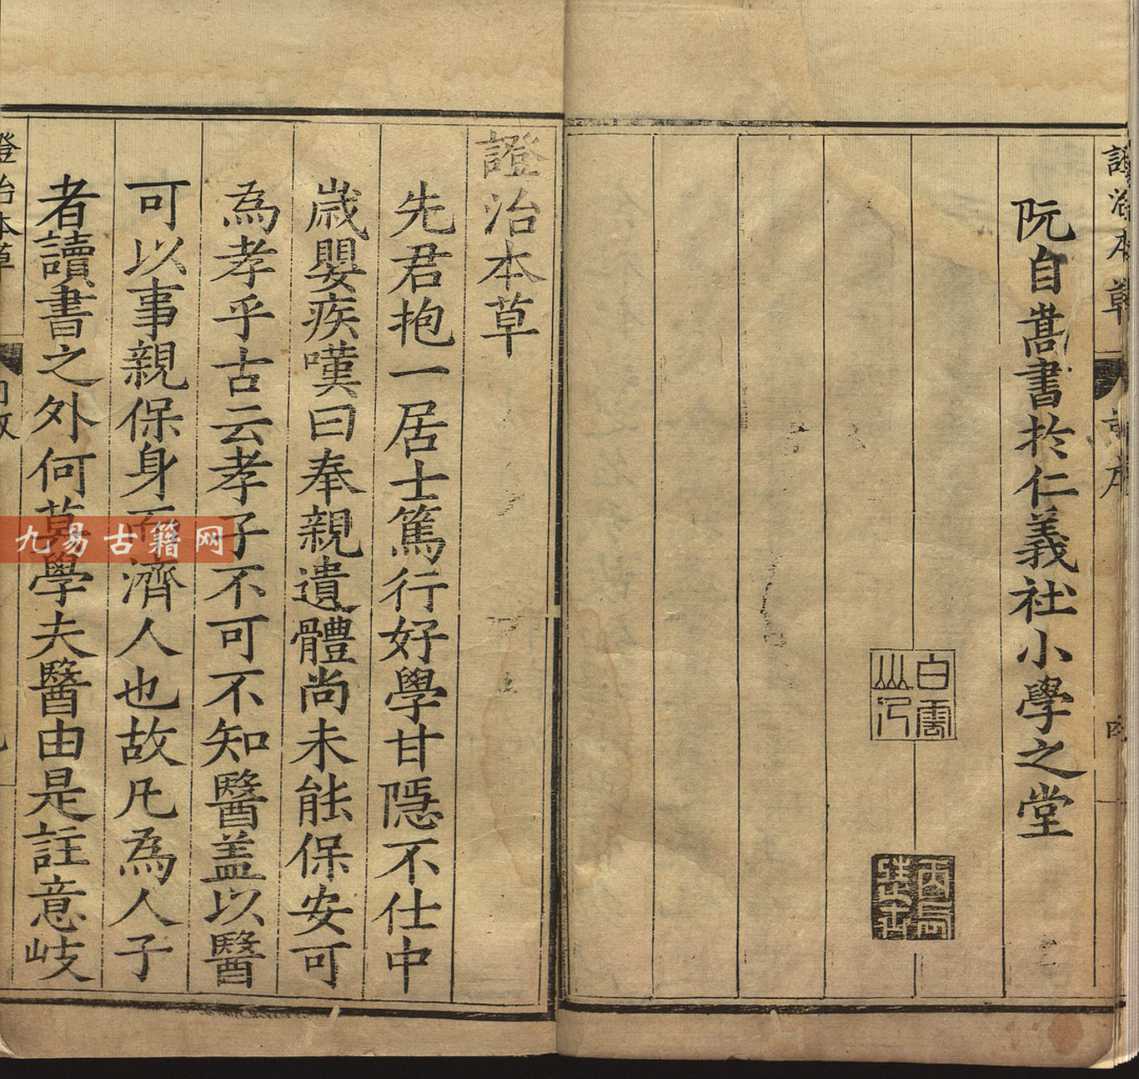 證治本草
阮自嵩書於仁義社小學之堂
白雲
證治本草
先君抱一居士篤行好學甘隱不仕中
歲嬰疾嘆曰奉親遺體尚未能保安可
為孝乎古云孝子不可不知醫盖以醫
可以事親保身而濟人也故凡為人子
者讀書之外何莫學夫醫由是註意岐
證治本草
九易古籍网